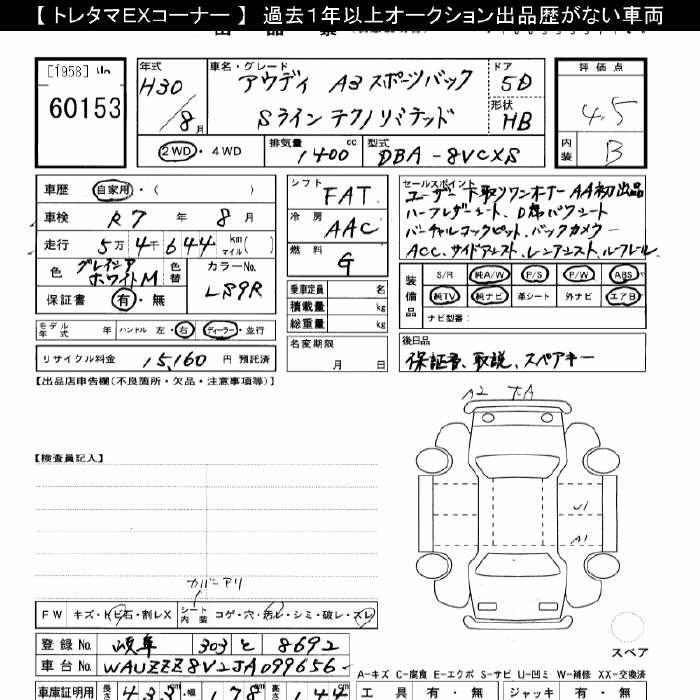 【トレタマEXコーナー】 過去1年以上オークション出品歴がない車両
[1958]
60153
年式 H30 / 8月
車名・グレード アウディ A3 スポーツバック
Sライン テクノリミテッド
ドア 5D
形状 HB
評価点 4.5
内装 B
2WD・4WD
排気量 1400 cc
型式 DBA-8VCXS
車歴 自家用・( )
車検 R7 年 8月
走行 5万4千644 km マイル( )
色 グレイシアホワイトM
色替
カラーNo. LS9R
保証書 有・無
モデル年式 年 ハンドル 左・右 ディーラー・並行
リサイクル料金 15,160 円 預託済
シフト FAT
冷房 AAC
燃料 G
乗車定員 名
積載量 kg
総重量 kg
名変期限 月 日
セールスポイント
ユーザー下取りワンオーナー AA初出品
ハーフレザーシート、D席パワシート
バーチャルコックピット、バックカメラー
ACC、サイドアシスト、レーンアシスト、ルーフレール
装備品
S/R 純A/W P/S P/W ABS
純TV 純ナビ 革シート 外ナビ エアB
ナビ型番：
後日品
保証書、取説、スペアキー
【出品店申告欄(不良箇所・欠品・注意事項等)】
【検査員記入】
A2
U1
A1
カバーアリ
FW キズ・ヒビ石・割レX
シート内装 コゲ・穴・汚レ・シミ・破レ・スレ
スペア
登録No. 岐阜 303 と 8692
車台No. WAUZZZ8V2JA099656-
A-キズ C-腐食 E-エクボ S-サビ U-凹ミ W-補修 XX-交換済
車庫証明用 長さ 433 cm・幅 178 cm 高さ 144 cm
工具 有・無 ジャッキ 有・無